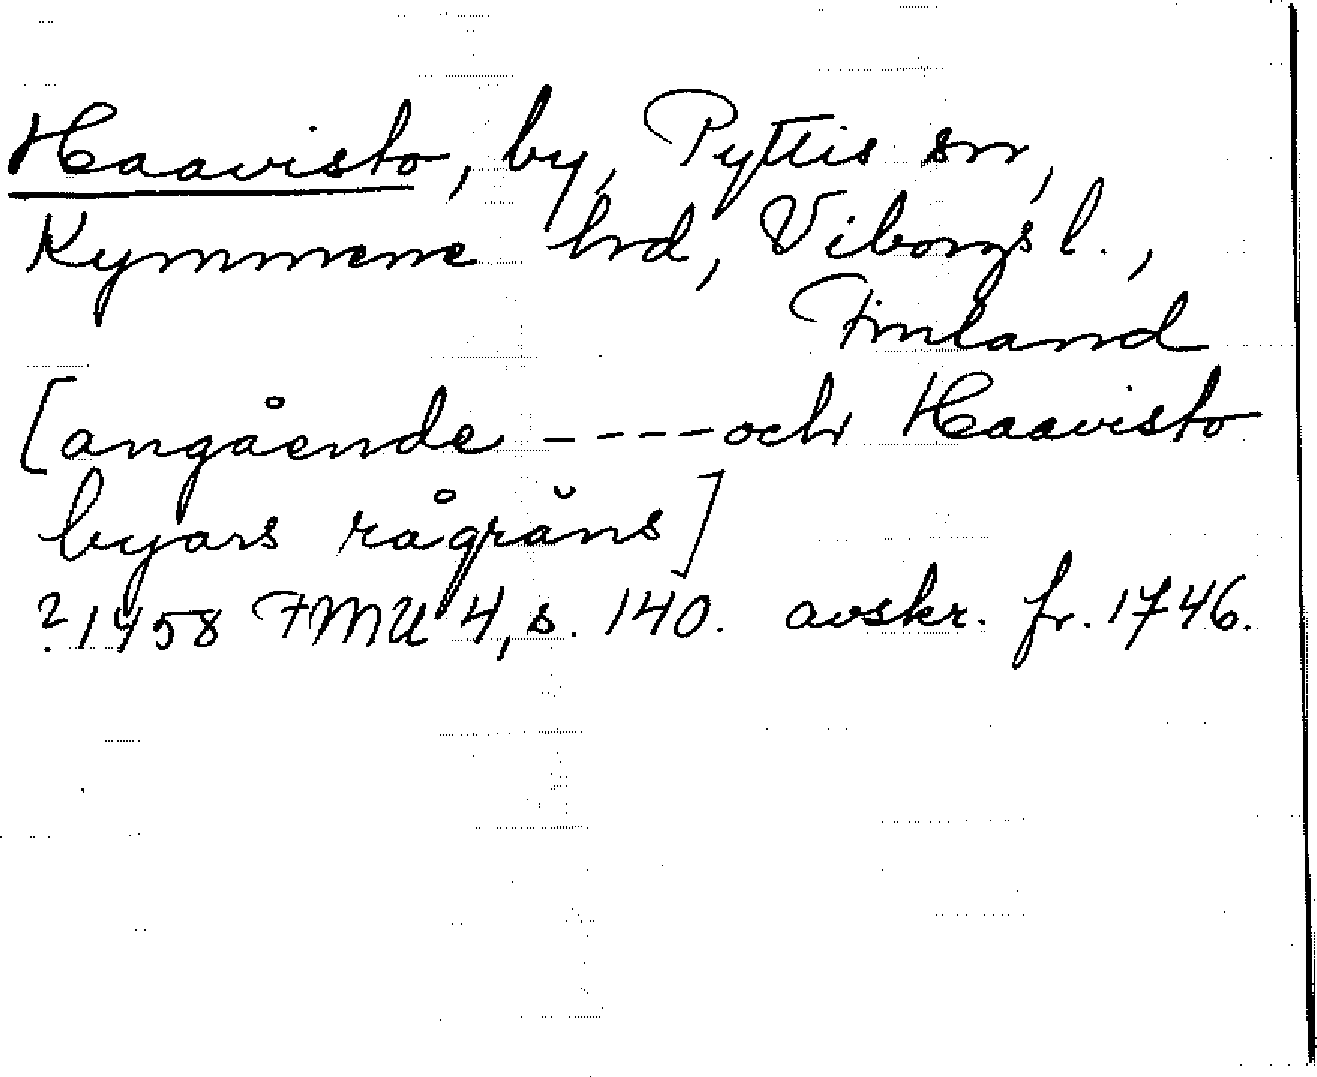 Haavisto, by, Pyttis sn,
Kymmene hrd, Viborgs l.,
Finland
[angående ----och Haavisto
byars rågräns]
? 1458 FMU 4, s. 140. avskr. fr. 1746.